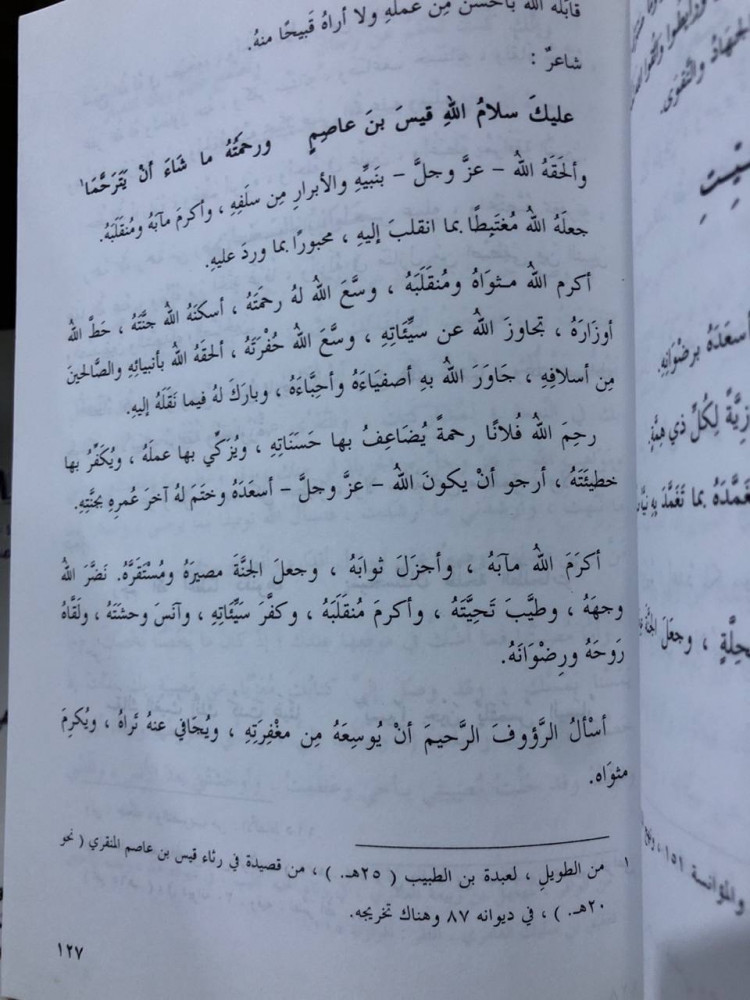 قابلَهُ اللهُ بأحسنَ مِن عملِهِ ولا أراهُ قَبيحًا منهُ.
شاعرٌ :
عليكَ سلامُ اللهِ قيسَ بنَ عاصِمٍ ورحمتُهُ ما شَاءَ أنْ يَتَرَحَّمَا ١
وألحَقَهُ اللهُ – عزَّ وجلَّ – بنَبيِّهِ والأبرارِ مِن سلَفِهِ ، وأكرمَ مآبَهُ ومُنقَلَبَهُ.
جعلَهُ اللهُ مُغتَبِطًا بما انقلبَ إليهِ ، محبورًا بما وردَ عليهِ.
أكرم اللهُ مثوَاهُ ومُنقَلَبَهُ ، وسَّعَ اللهُ لهُ رحمتَهُ ، أسكنَهُ اللهُ جنَّتَهُ ، حَطَّ اللهُ
أوزَارَهُ ، تجاوزَ اللهُ عن سيِّئَاتِهِ ، وسَّعَ اللهُ حُفْرَتَهُ ، ألحقَهُ اللهُ بأنبيائِهِ والصَّالحينَ
مِن أسلافِهِ ، جَاوَرَ اللهُ بهِ أصفيَاءَهُ وأحِبَّاءَهُ ، وبارَكَ لهُ فيما نَقَلَهُ إليهِ.
رحِمَ اللهُ فُلانًا رحمةً يُضَاعِفُ بها حَسَنَاتِهِ ، ويُزَكِّي بها عملَهُ ، ويُكَفِّرُ بها
خطيئَتَهُ ، أرجو أنْ يكونَ اللهُ – عزَّ وجلَّ – أسعَدَهُ وختَمَ لهُ آخرَ عُمرِهِ بجنَّتِهِ.
أكرَمَ اللهُ مآبَهُ ، وأجزَلَ ثوابَهُ ، وجعلَ الجنَّةَ مصيرَهُ ومُسْتَقَرَّهُ. نَضَّرَ اللهُ
وجهَهُ ، وطيَّبَ تَحيَّتَهُ ، وأكرمَ مُنقلَبَهُ ، وكفَّرَ سَيِّئَاتِهِ ، وآنَسَ وحشَتَهُ ، ولَقَّاهُ
رَوحَهُ ورِضْوَانَهُ.
أسْألُ الرَّؤوفَ الرَّحيمَ أنْ يُوسِعَهُ مِن مغْفِرَتِهِ ، ويُجَافي عنهُ ثَراهُ ، ويُكرِمَ
مثوَاه.
١ من الطويلِ ، لعبدة بن الطبيب ( ٢٥هـ. ) ، من قصيدة في رثاء قيس بن عاصم المنقري ( نحو
٢٠هـ. ) ، في ديوانه ٨٧ وهناك تخريجه.
١٢٧
الجهادُ والتَّقوَى.
أسعَدَهُ برضْوَانِهِ.
لِكُلِّ ذي هِمَّةٍ.
بما تَغَمَّدَ بِهِ
، وجعَلَ الجنَّةَ
والمؤانسة ١٥١